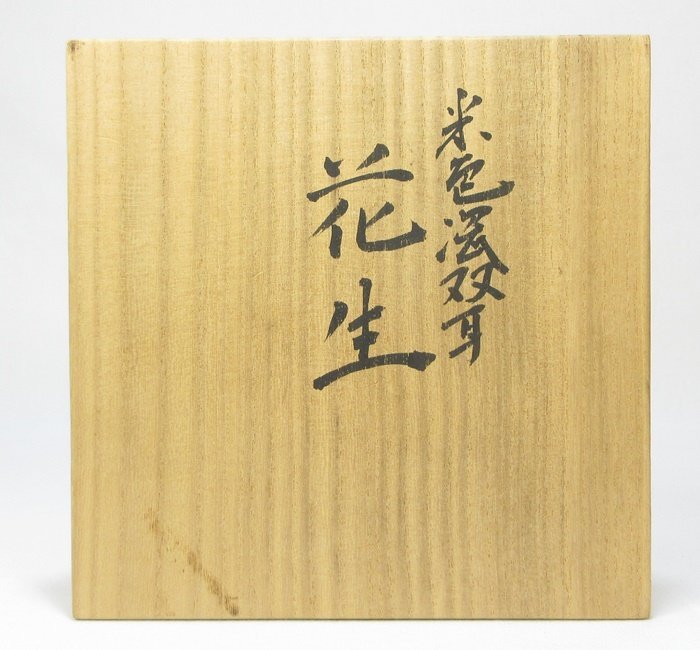 米色瓷双耳
花生